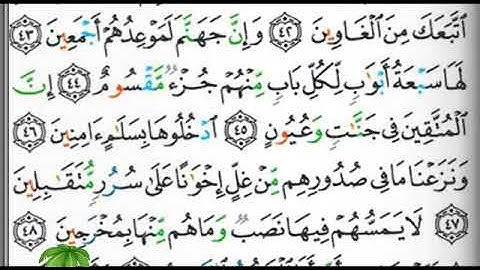 ٱتَّبَعَكَ مِنَ ٱلْغَاوِينَ ٤٢ وَإِنَّ جَهَنَّمَ لَمَوْعِدُهُمْ أَجْمَعِينَ ٤٣
لَهَا سَبْعَةُ أَبْوَٰبٍ لِّكُلِّ بَابٍ مِّنْهُمْ جُزْءٌ مَّقْسُومٌ ٤٤ إِنَّ
ٱلْمُتَّقِينَ فِى جَنَّٰتٍ وَعُيُونٍ ٤٥ ٱدْخُلُوهَا بِسَلَٰمٍ ءَامِنِينَ ٤٦
وَنَزَعْنَا مَا فِى صُدُورِهِم مِّنْ غِلٍّ إِخْوَٰنًا عَلَىٰ سُرُرٍ مُّتَقَٰبِلِينَ
٤٧ لَا يَمَسُّهُمْ فِيهَا نَصَبٌ وَمَا هُم مِّنْهَا بِمُخْرَجِينَ ٤٨